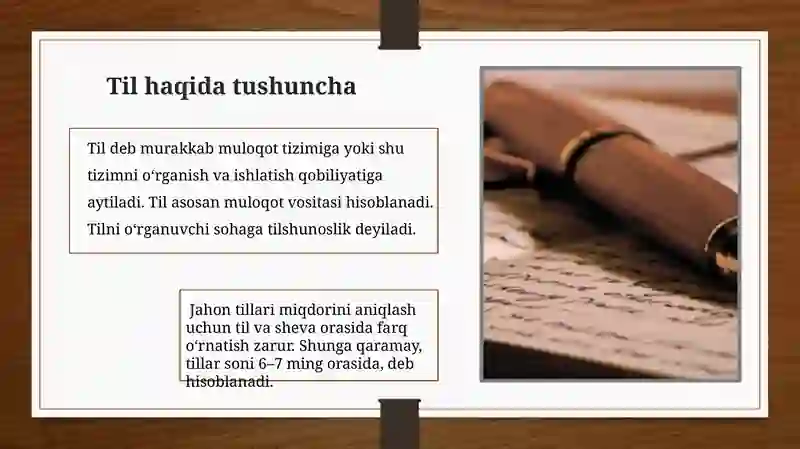 Til haqida tushuncha
Til deb murakkab muloqot tizimiga yoki shu
tizimni o‘rganish va ishlatish qobiliyatiga
aytiladi. Til asosan muloqot vositasi hisoblanadi.
Tilni o‘rganuvchi sohaga tilshunoslik deyiladi.
Jahon tillari miqdorini aniqlash
uchun til va sheva orasida farq
o‘rnatish zarur. Shunga qaramay,
tillar soni 6–7 ming orasida, deb
hisoblanadi.